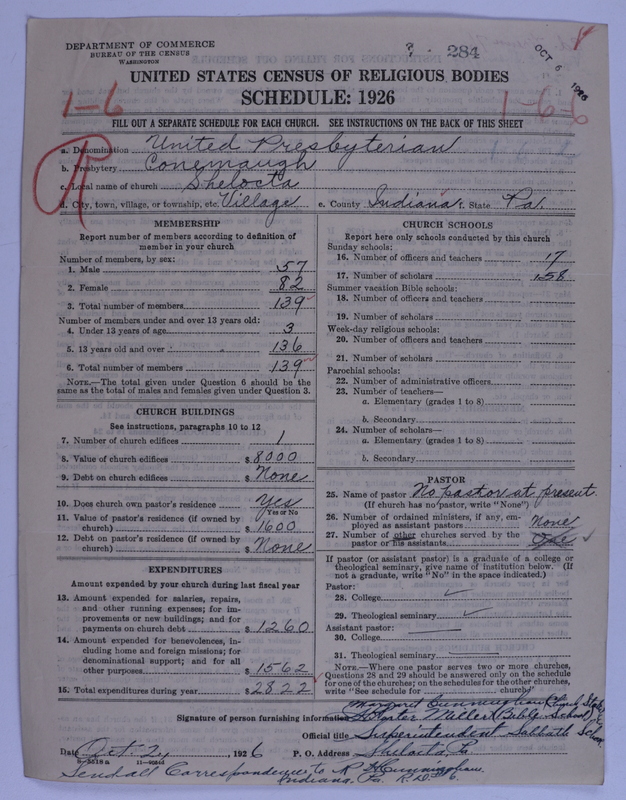 DEPARTMENT OF COMMERCE
BUREAU OF THE CENSUS
WASHINGTON
284
OCT 5 1926
UNITED STATES CENSUS OF RELIGIOUS BODIES
SCHEDULE: 1926
1-6
1-6
FILL OUT A SEPARATE SCHEDULE FOR EACH CHURCH. SEE INSTRUCTIONS ON THE BACK OF THIS SHEET
R
a. Denomination United Presbyterian
b. Presbytery Conemaugh
c. Local name of church Shelocta
d. City, town, village, or township, etc. Village e. County Indiana f. State Pa.
MEMBERSHIP
Report number of members according to definition of member in your church
Number of members, by sex:
1. Male 57
2. Female 82
3. Total number of members 139
Number of members under and over 13 years old:
4. Under 13 years of age 3
5. 13 years old and over 136
6. Total number of members 139
NOTE.—The total given under Question 6 should be the same as the total of males and females given under Question 3.
CHURCH BUILDINGS
See instructions, paragraphs 10 to 12
7. Number of church edifices 1
8. Value of church edifices $ 8000
9. Debt on church edifices $ None
10. Does church own pastor's residence Yes
Yes or No
11. Value of pastor's residence (if owned by church) $ 1600
12. Debt on pastor's residence (if owned by church) $ None
EXPENDITURES
Amount expended by church during last fiscal year
13. Amount expended for salaries, repairs, and other running expenses; for improvements or new buildings; and for payments on church debt $ 1260
14. Amount expended for benevolences, including home and foreign missions; for denominational support; and for all other purposes $ 1562
15. Total expenditures during year $ 2822
CHURCH SCHOOLS
Report here only schools conducted by this church
Sunday schools:
16. Number of officers and teachers 17
17. Number of scholars 158
Summer vacation Bible schools:
18. Number of officers and teachers
19. Number of scholars
Week-day religious schools:
20. Number of officers and teachers
21. Number of scholars
Parochial schools:
22. Number of administrative officers
23. Number of teachers—
a. Elementary (grades 1 to 8)
b. Secondary
24. Number of scholars—
a. Elementary (grades 1 to 8)
b. Secondary
PASTOR
25. Name of pastor No pastor at present.
(If church has no pastor, write "None")
26. Number of ordained ministers, if any, employed as assistant pastors None
27. Number of other churches served by the pastor or his assistants
If pastor (or assistant pastor) is a graduate of a college or theological seminary, give name of institution below. (If not a graduate, write "No" in the space indicated.)
Pastor:
28. College
29. Theological seminary
Assistant pastor:
30. College
31. Theological seminary
NOTE.—Where one pastor serves two or more churches, Questions 28 and 29 should be answered only on the schedule for one of the churches; on the schedules for the other churches, write "See schedule for church."
Margaret Cunningham
Signature of person furnishing information Miller Bible School
Official title Superintendent Sabbath School
Date Oct 2, 1926 P. O. Address Shelocta Pa
Send all Correspondence to R H Cunningham
Indiana, Pa. R. D. 6.